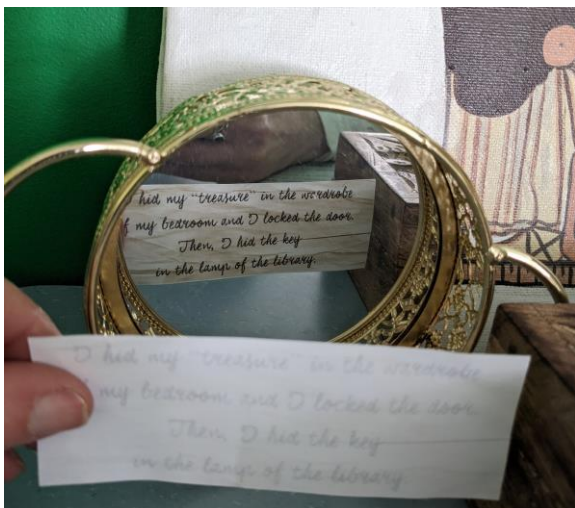 hid my "treasure" in the wardrobe
my bedroom and I locked the door.
Then, I hid the key
in the lamp of the library.
I hid my "treasure" in the wardrobe
my bedroom and I locked the door
Then, I hid the key
in the lamp of the library